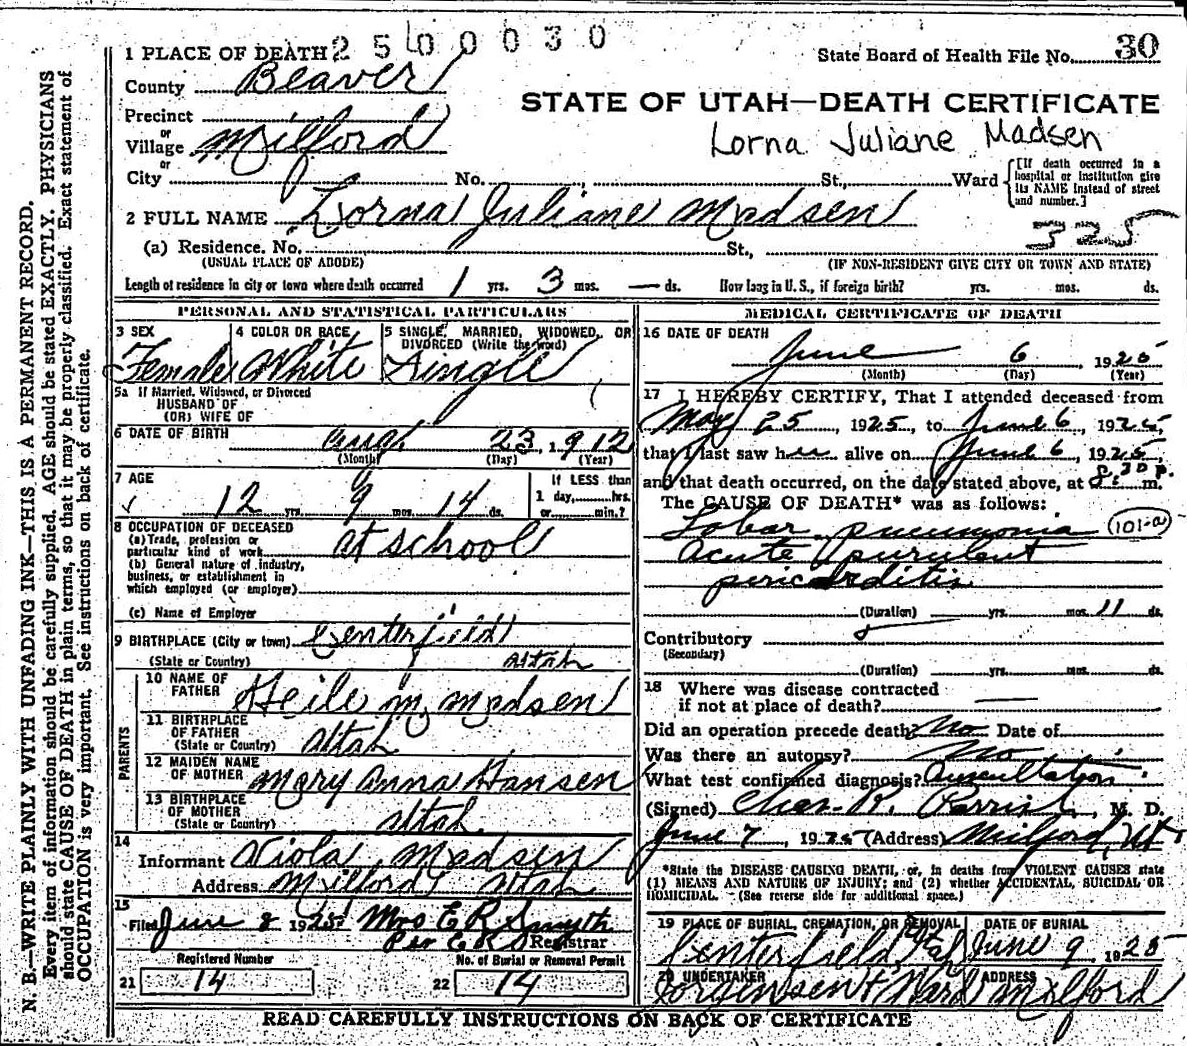 2500030
1 PLACE OF DEATH
State Board of Health File No. 30
County Beaver
STATE OF UTAH—DEATH CERTIFICATE
Precinct
or
Village Milford
Lorna Juliane Madsen
or
City No. , St., Ward
[If death occurred in a
hospital or institution give
its NAME instead of street
and number.]
2 FULL NAME Lorna Juliane Madsen
325
(a) Residence. No. St.,
(USUAL PLACE OF ABODE) (IF NON-RESIDENT GIVE CITY OR TOWN AND STATE)
Length of residence in city or town where death occurred 1 yrs. 3 mos. — ds. How long in U. S., if foreign birth? yrs. mos. ds.
PERSONAL AND STATISTICAL PARTICULARS
3 SEX Female
4 COLOR OR RACE White
5 SINGLE, MARRIED, WIDOWED, OR
DIVORCED (Write the word)
Single
5a If Married, Widowed, or Divorced
HUSBAND OF
(OR) WIFE OF
6 DATE OF BIRTH Aug. 23, 1912
(Month) (Day) (Year)
7 AGE
12 yrs. 9 mos. 14 ds.
If LESS than
1 day, hrs.
or min.?
8 OCCUPATION OF DECEASED
(a) Trade, profession or
particular kind of work at school
(b) General nature of industry,
business, or establishment in
which employed (or employer)
(c) Name of Employer
9 BIRTHPLACE (City or town) Centerfield
(State or Country) Utah
PARENTS
10 NAME OF
FATHER Heile M. Madsen
11 BIRTHPLACE
OF FATHER
(State or Country) Utah
12 MAIDEN NAME
OF MOTHER Mary Anna Hansen
13 BIRTHPLACE
OF MOTHER
(State or Country) Utah
14
Informant Viola Madsen
Address Milford Utah
15
Filed June 8 1925 Mrs E R Smyth
Per E R S Registrar
Registered Number No. of Burial or Removal Permit
21 14 22 14
MEDICAL CERTIFICATE OF DEATH
16 DATE OF DEATH
June 6 1925
(Month) (Day) (Year)
17 I HEREBY CERTIFY, That I attended deceased from
May 25, 1925, to June 6, 1925,
that I last saw her alive on June 6, 1925,
and that death occurred, on the date stated above, at 8:30 P. m.
The CAUSE OF DEATH* was as follows:
Lobar pneumonia (101-a)
Acute purulent
pericarditis
(Duration) yrs. mos. 11 ds.
Contributory
(Secondary)
(Duration) yrs. mos. ds.
18 Where was disease contracted
if not at place of death? —
Did an operation precede death? No Date of
Was there an autopsy? No
What test confirmed diagnosis? Auscultation
(Signed) Chas. R. Parrish, M. D.
June 7, 1925 (Address) Milford, Ut.
*State the DISEASE CAUSING DEATH, or, in deaths from VIOLENT CAUSES state
(1) MEANS AND NATURE OF INJURY; and (2) whether ACCIDENTAL, SUICIDAL OR
HOMICIDAL. (See reverse side for additional space.)
19 PLACE OF BURIAL, CREMATION, OR REMOVAL
Centerfield Utah
DATE OF BURIAL
June 9 1925
20 UNDERTAKER
Jorgensen & Ward
ADDRESS
Milford
READ CAREFULLY INSTRUCTIONS ON BACK OF CERTIFICATE
N. B.—WRITE PLAINLY WITH UNFADING INK—THIS IS A PERMANENT RECORD.
Every item of information should be carefully supplied. AGE should be stated EXACTLY. PHYSICIANS
should state CAUSE OF DEATH in plain terms, so that it may be properly classified. Exact statement of
OCCUPATION is very important. See instructions on back of certificate.